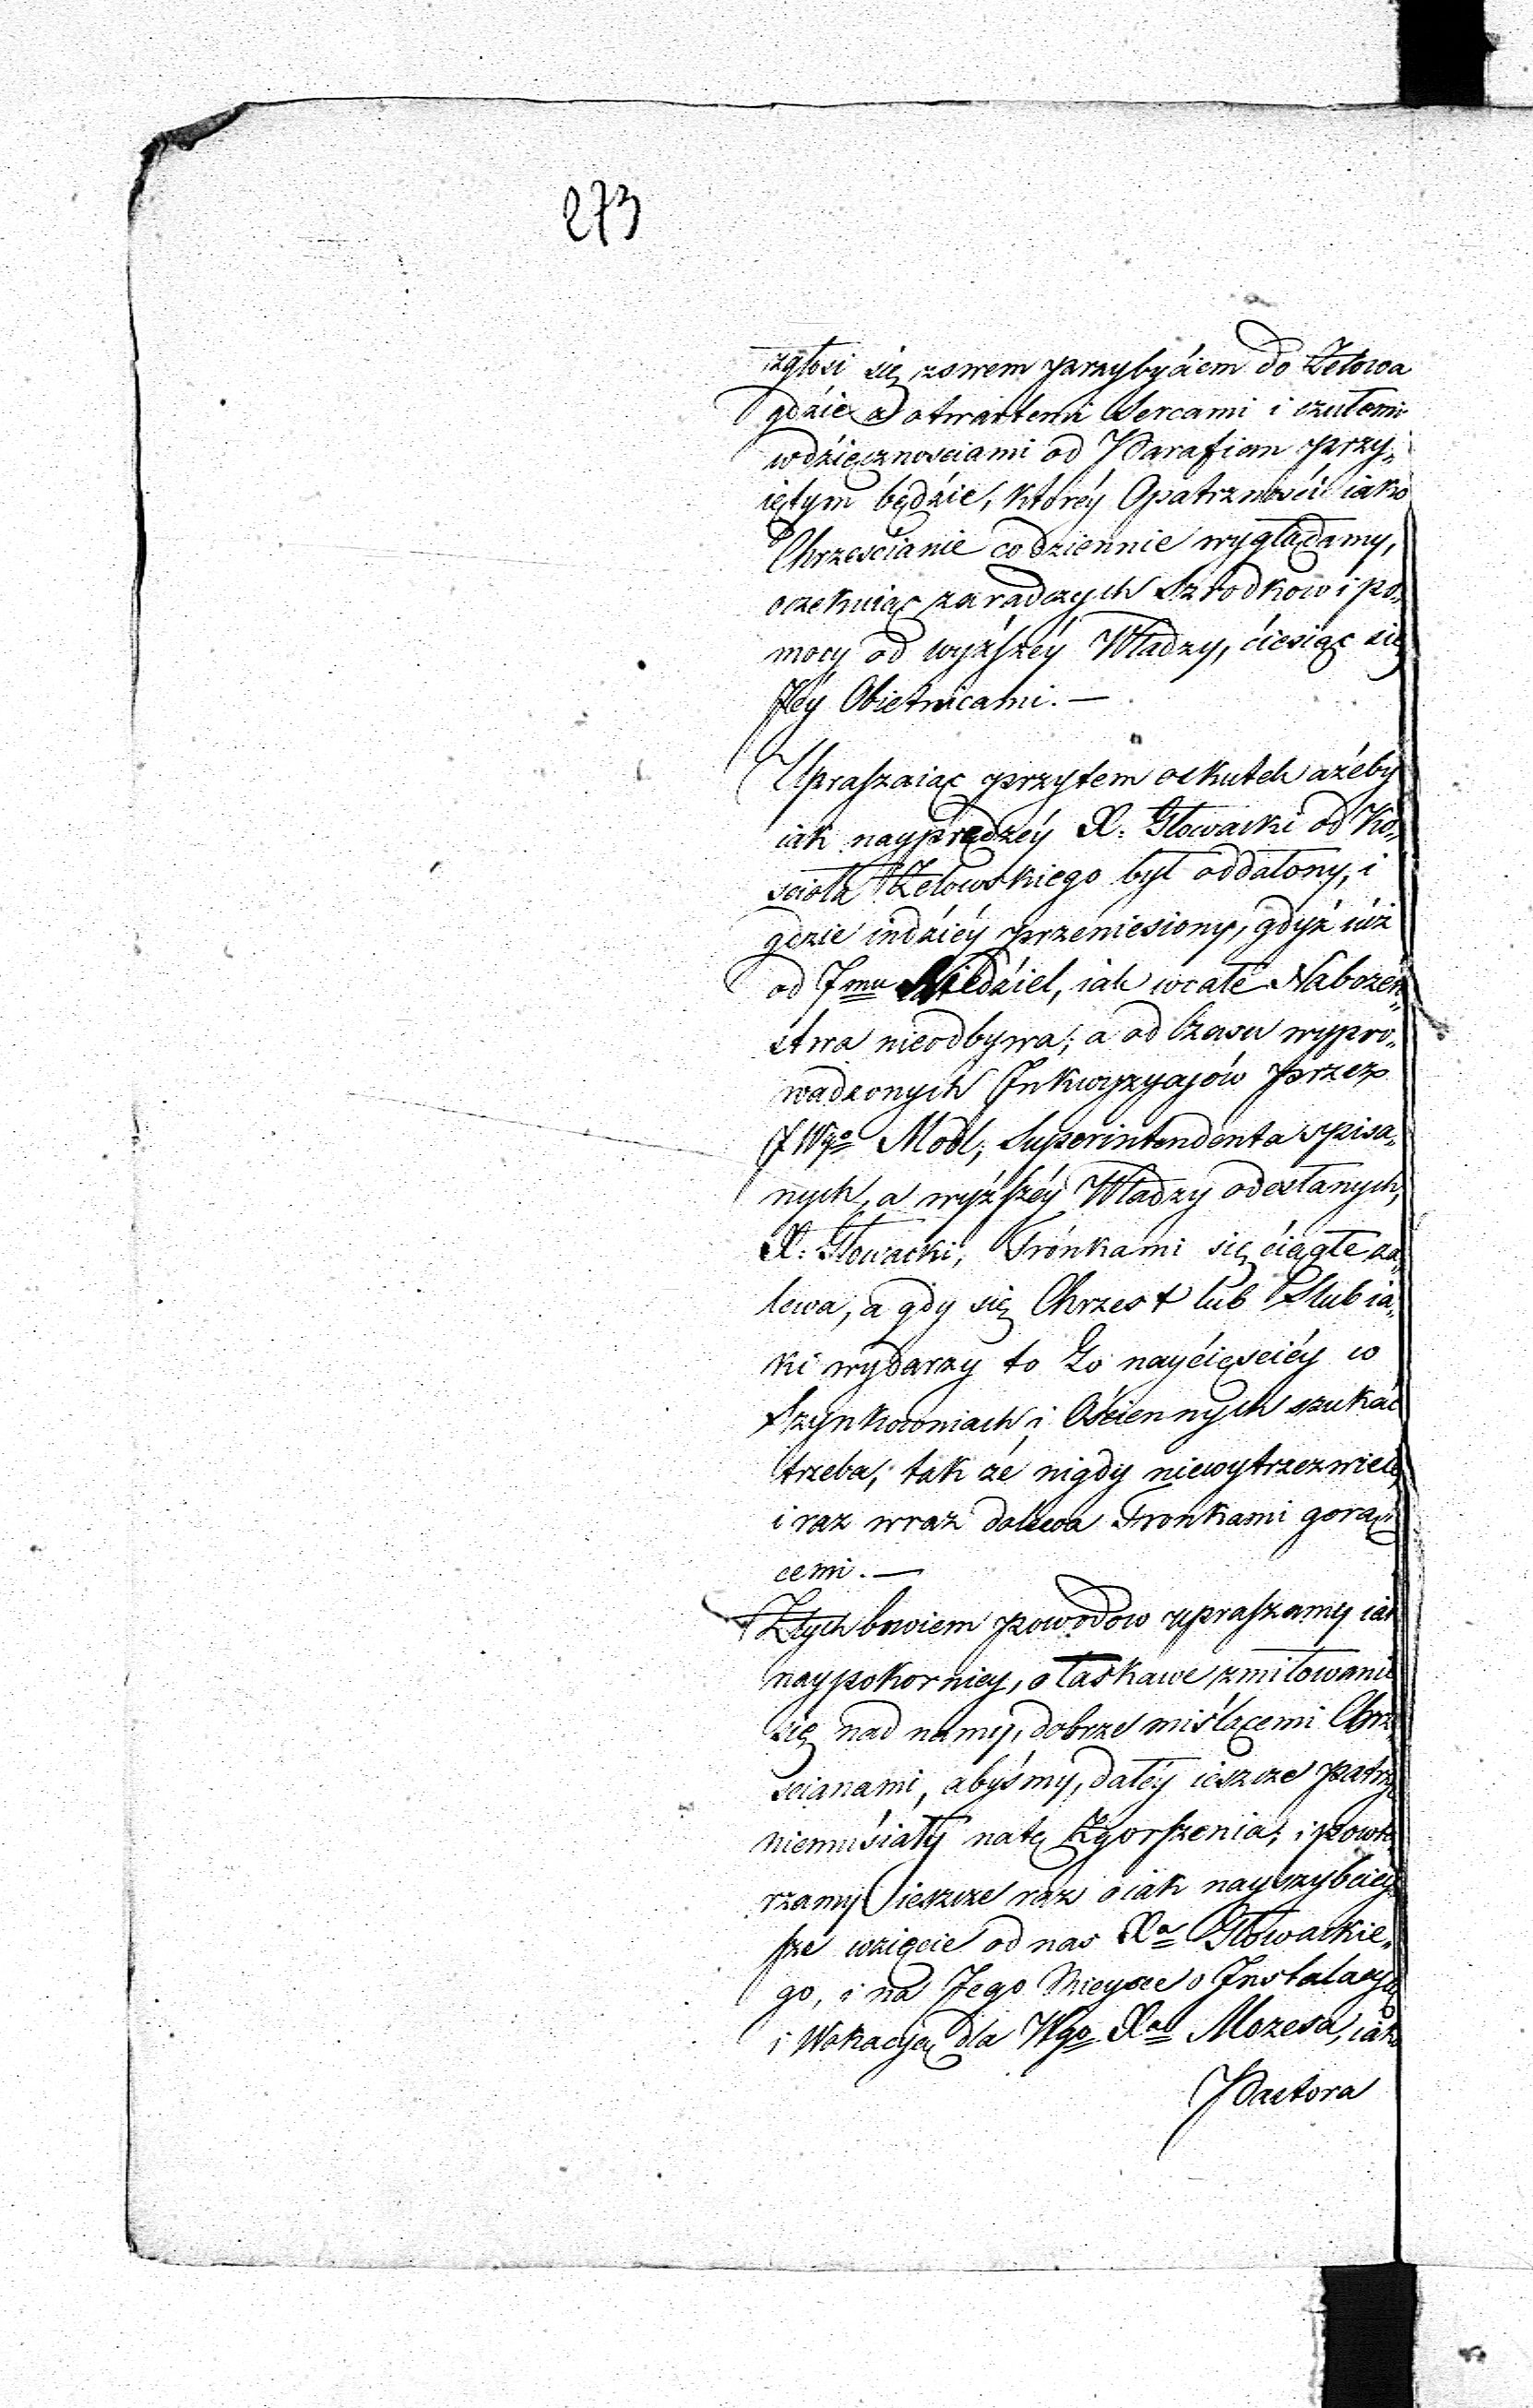 273
zgłosi się zswem przybyćiem do Zełowa
gdźie z otwartemi Sercami i czułemi
wdźięcznościami od Parafian przy„
iętym będźie, któréy Opatrzności iako
Chrzescianie codziennie wyglądamy,
oczekuiąc zaradczych Szrodkow i po„
mocy od wyższéy Władzy, ćiesiąc się
Jéy Obietnicami. —
Upraszaiąc przytem oskutek ażeby
iak nayprędzéy X: Głowacki od Ko„
scioła Zełowskiego był oddalony, i
gdzie indźiéy przeniesiony, gdyż iúż
od 7mu Niedźiel, iak wcale Nabożeń„
stwa nieodbywa; a od Czasu wypro„
wadzonych Inkwyzycyjów przez
JWgo Modl; Superintendenta spisa„
nych, a wyższéy Władzy odesłanych,
X: Głowacki, Trónkami się ćiągle za„
lewa, a gdy się Chrzest lub Slub ia„
ki wydarzy to Go nayćięsciéy w
Szynkowniach i Ościennych szukać
trzeba, tak że nigdy niewytrzezwieie,
i raz wraz dolewa Tronkami gorą„
cemi. —
Ztych bowiem powodow upraszamy iak
naypokorniey, o łaskawe zmiłowanie
się nad namy, dobrze miślącemi Chrze„
scianami, abyśmy, daléy ieszcze patrzyć
niemuśiały natę Zgorszenia; i powta„
rzamy ieszcze raz o iak nayszybciey„
sze wzięcie od nas Xa Głowackie„
go, i na Jego Mieysce o Instalacyą
i Wokacyą dla Wgo Xa Mozesa, iako
Pastora